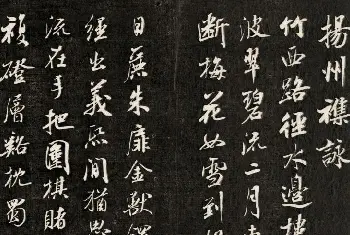 揚州襍詠
竹西路徑水邊樓
波翠碧流二月
斷梅花如雪到
日蕪朱扉金獸
經出義熙間猶
流在手把圍棋賭
複磴層谿枕蜀